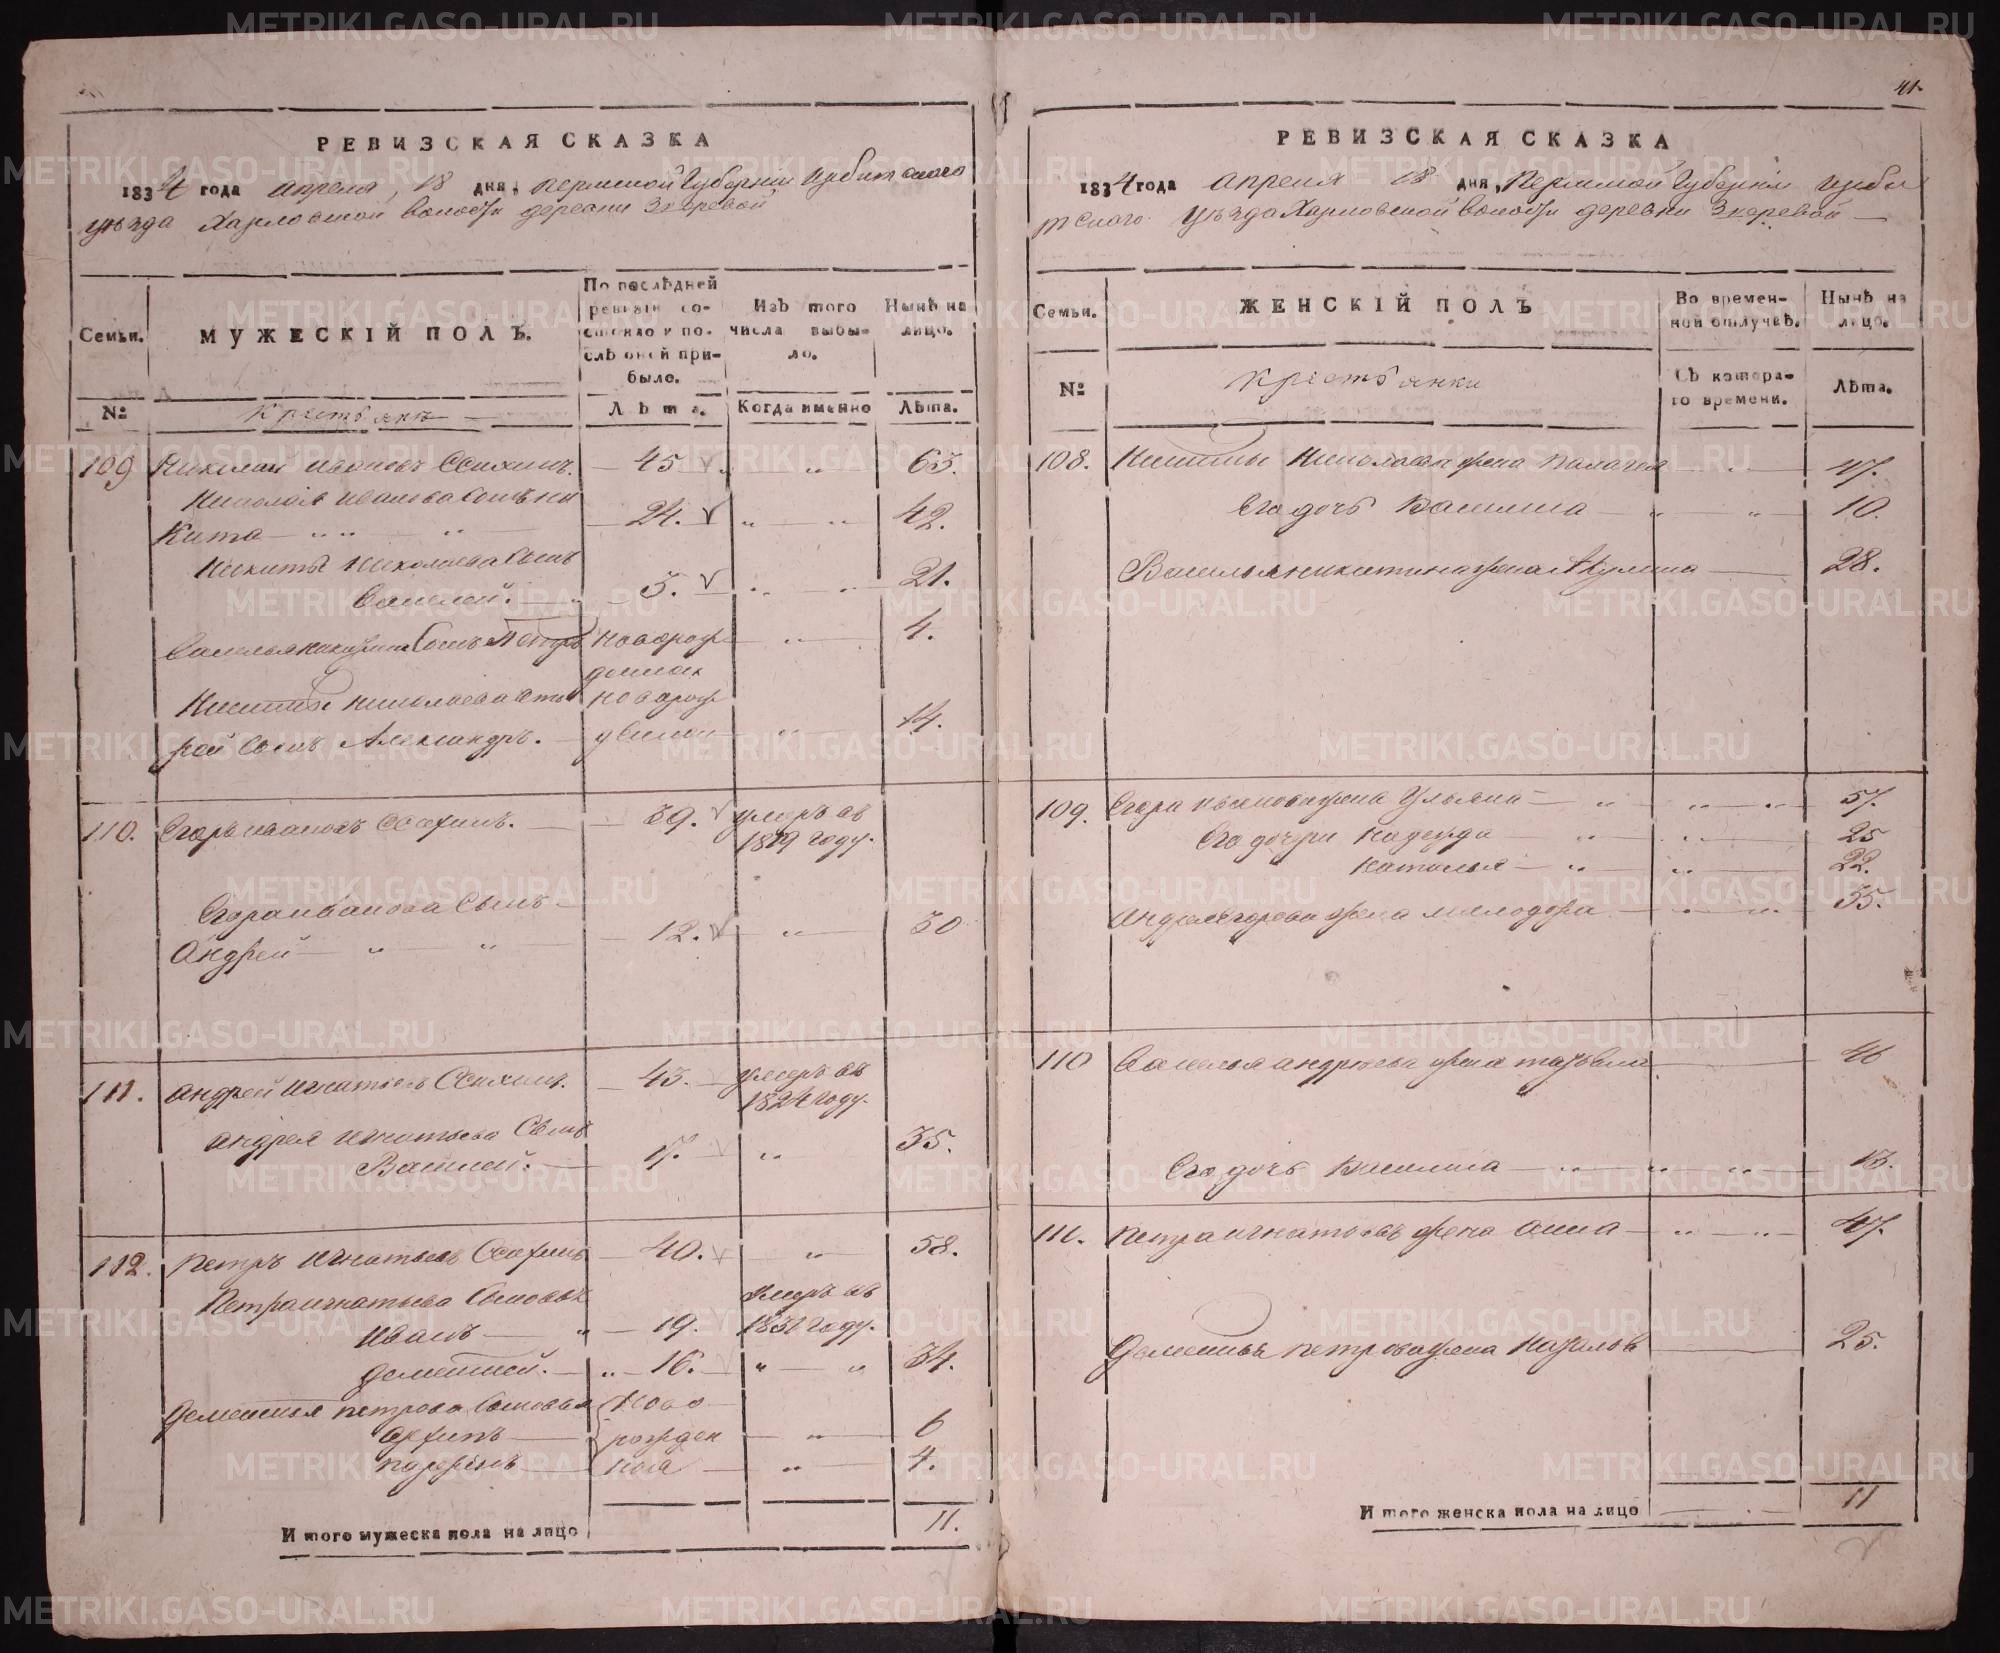 41.
РЕВИЗСКАЯ СКАЗКА
1834 года апреля, 18 дня, Пермской Губернии Ирбитского
уѣзда Харловской волости деревни Зверевой
Семьи.
МУЖЕСКІЙ ПОЛЪ.
По послѣдней ревизіи состояло и послѣ оной прибыло.
Изъ того числа выбыло.
Нынѣ на лицо.
№
Крестьяне
Лѣта.
Когда именно
Лѣта.
109 Николай Ивановъ 45 63.
Николая Иванова Сынъ Ни
кита 24. 42.
Никиты Николаева Сынъ
Василей. 3. 21.
Василья Никитина Сынъ Петръ новорож 4.
денной
Никиты Николаева вто новорож
рой Сынъ Александръ. денной 14.
110. Егоръ Ивановъ 39. умеръ въ
1819 году.
Егора Иванова Сынъ
Андрей 12. 30
111. Андрей Игнатьевъ 43. умеръ въ
1824 году.
Андрея Игнатьева Сынъ
Василей. 17. 35.
112. Петръ Игнатьевъ 40. 58.
Петра Игнатьева Сыновья умеръ въ
Иванъ 19. 1831 году.
Дементей. 16. 34.
Дементья Петрова Сыновья Ново
Архипъ рожден 6
Парфенъ ные 4.
И того мужеска пола на лицо 11.
РЕВИЗСКАЯ СКАЗКА
1834 года апреля 18 дня, Пермской Губерніи Ирби
тского уѣзда Харловской волости деревни Зверевой
Семьи.
ЖЕНСКІЙ ПОЛЪ
Во временной отлучкѣ.
Нынѣ на лицо.
№
Крестьянки
Съ котораго времени.
Лѣта.
108. Никиты Николаева жена Палагея 47.
Его дочь Василиса 10.
Василья Никитина жена Акулина 28.
109. Егора Иванова жена Ульяна 57.
Его дочери Надежда 25
Наталья 22.
Андрея Егорова жена 35.
110 Василья Андреева жена 46
Его дочь Василиса 13.
111. Петра Игнатьева жена Анна 47.
Дементья Петрова жена Наталья 25.
И того женска пола на лицо 11
METRIKI.GASO-URAL.RU